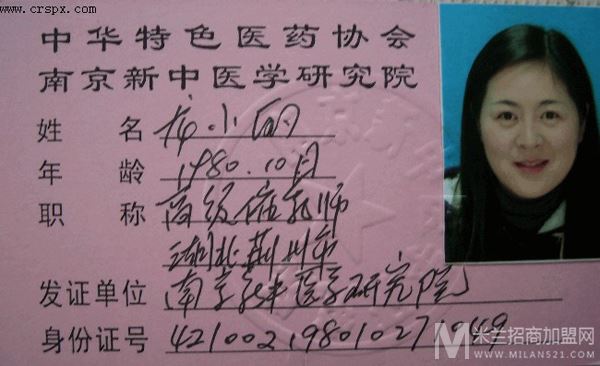 www.crspx.com
中华特色医药协会
南京新中医学研究院
姓 名 龙小明
年 龄 1980.10月
职 称 高级催乳师
湖北荆州市
发证单位 南京新中医学研究院
身份证号
米兰招商加盟网
WWW.MILAN521.COM